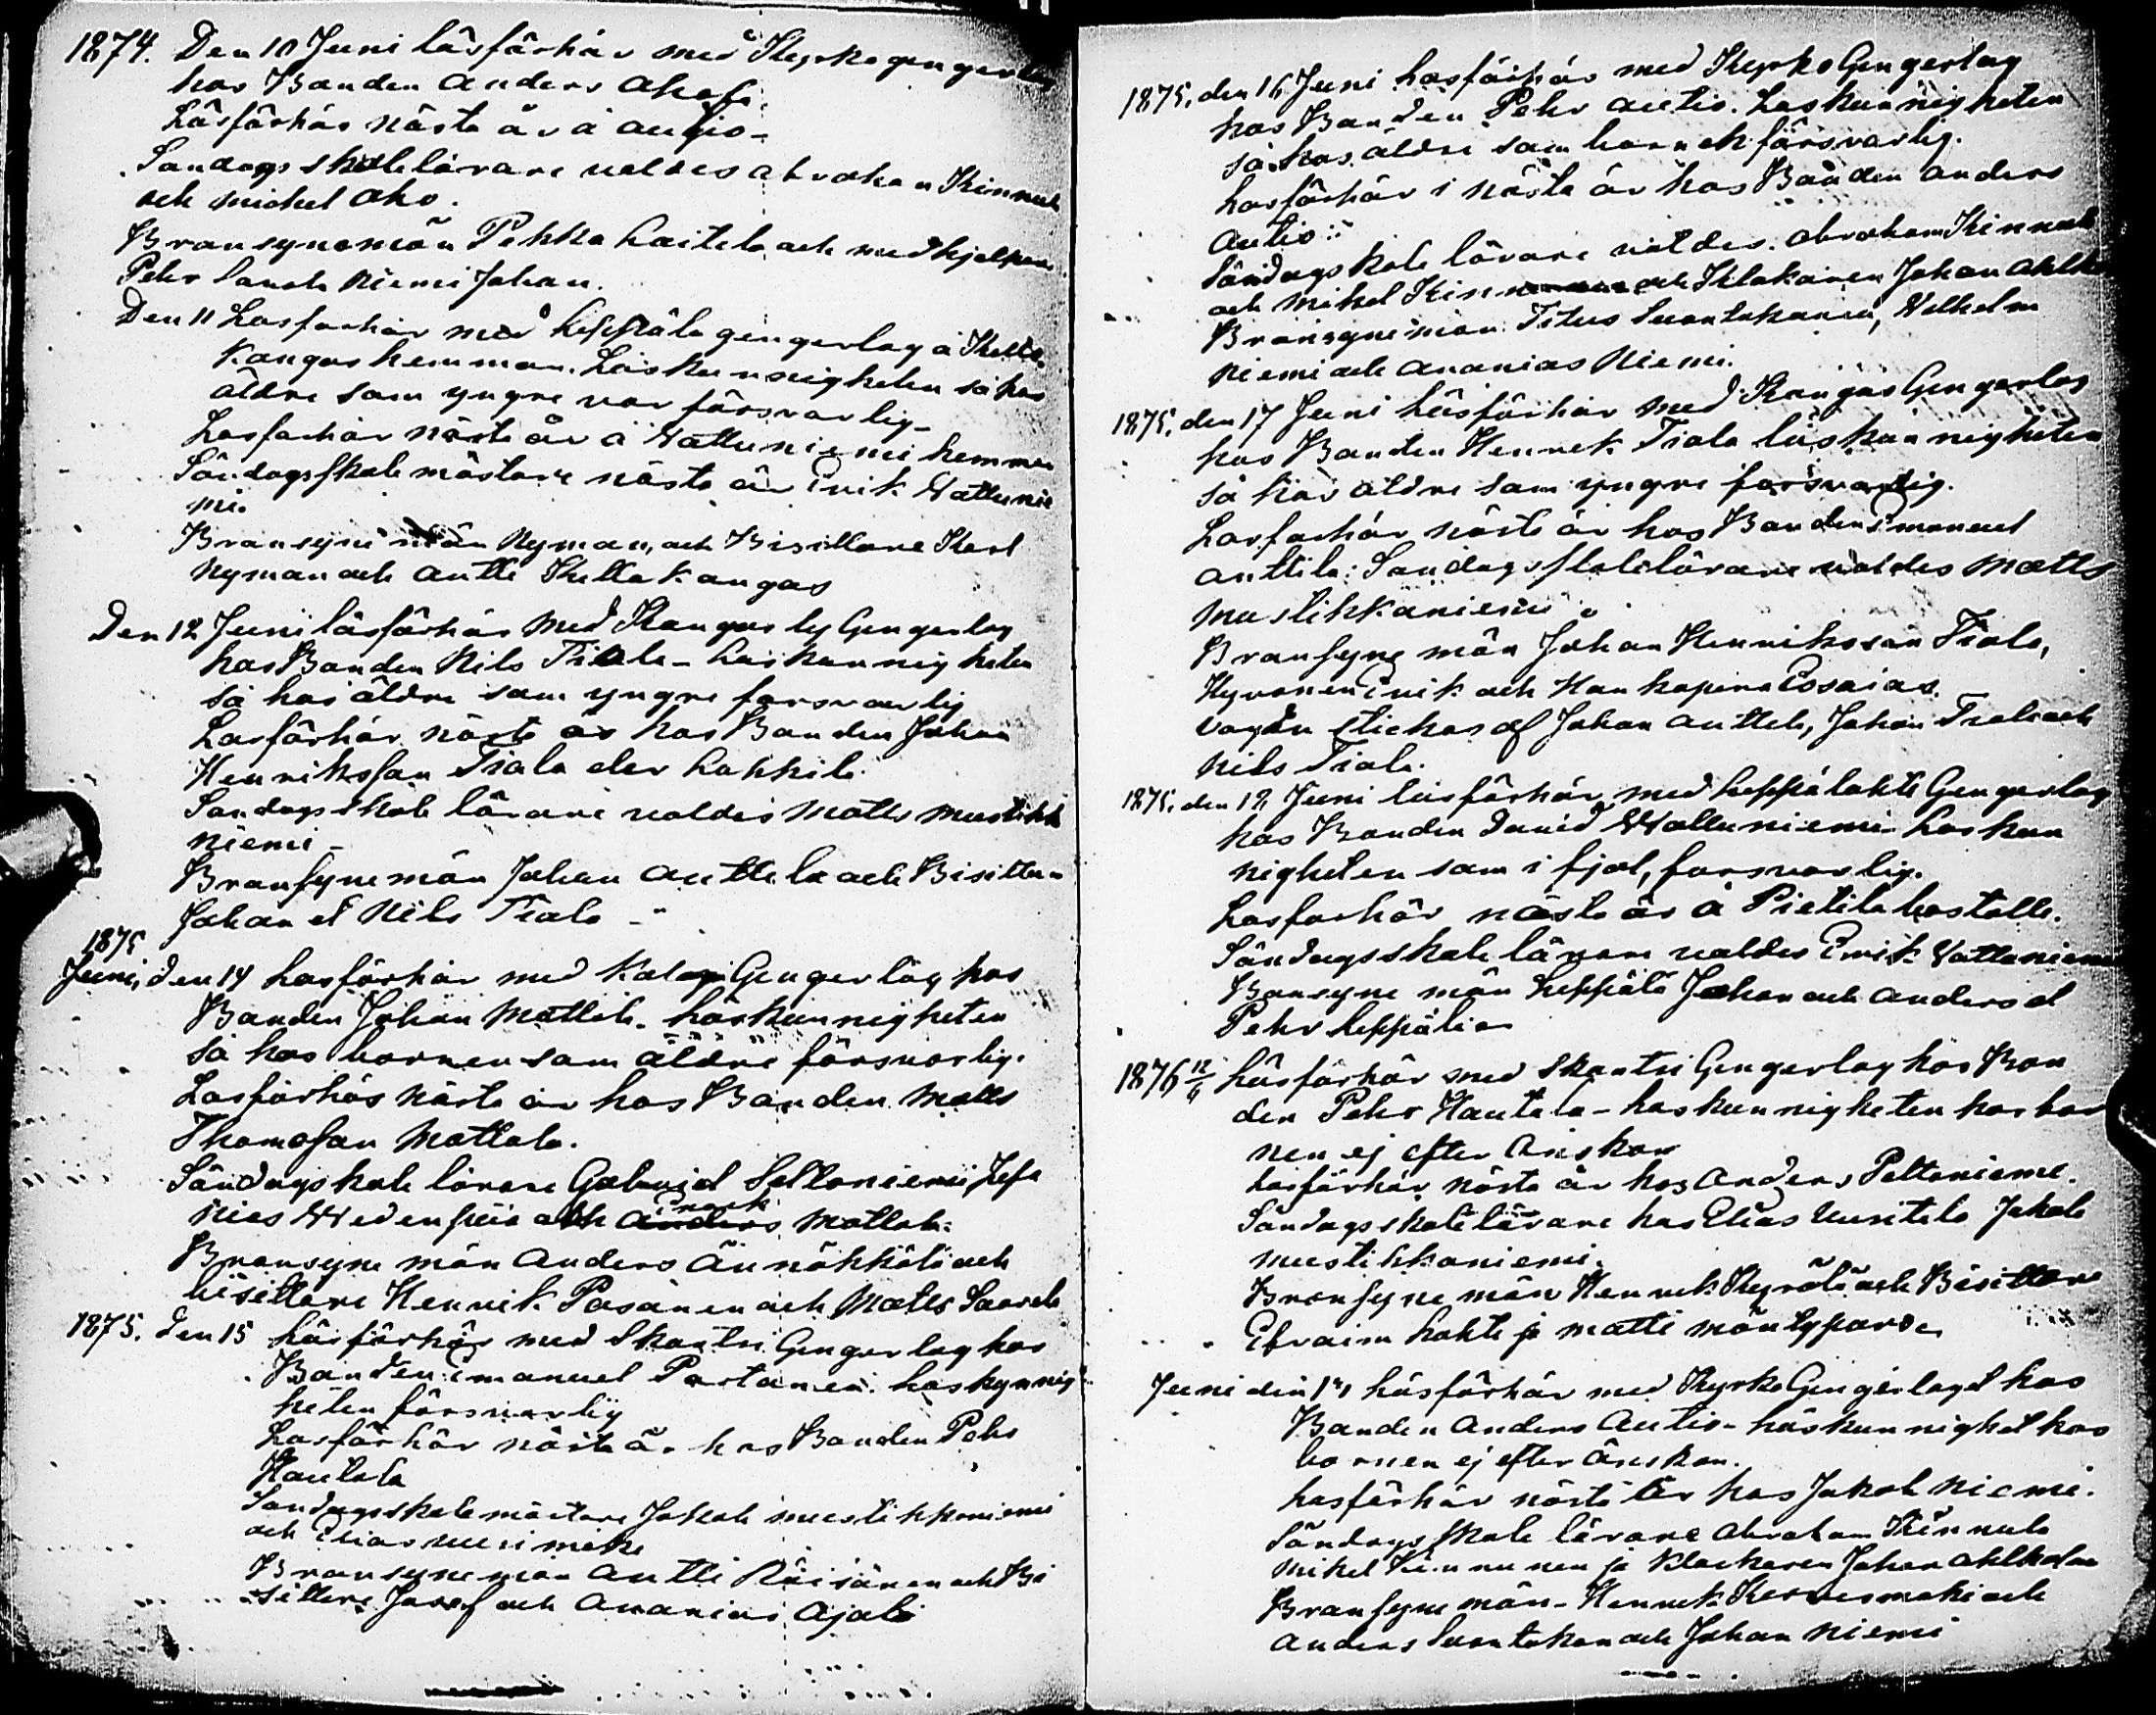 1874. Den 10 Juni läsförhör med Kyrko gengerlag
hos Bonden Anders Aho
Läsförhör nästa år å autio-
Sondags skolelärare valdes abraham Kinnul
och michel Aho.
Bransynemän Pekka Laitela och medhjelpare
Pehr Niemi Johan.
Den 11 Lasforhör med Leppälä gengerlag å Kello
Kangas hemman. Läskunnigheten så hos
äldre som yngre var försvarlig-
Lasforhör nästa år å Vattuniemi hemman
Söndagsskole mästare nästa år Erik Vattunie
mi.
Bransyne män Nyman, och Bisittare Karl
Nyman och Antti Kellokangas
Den 12 Juni läsförhör med Kangas by Gengerlag
hos Bonden Nils Tiala - Laskunnigheten
så hos äldre som yngre forsvarlig
Lasförhör nästa år hos Bonden Johan
Henriksson Tiala eler Lakkila.
Sondags skole lärare valdes Matts Mustikka
niemi -
Bransynemän Johan Anttila och Bisittare
Johan et Nils Tiala -
1875
Juni, den 14 Lasförhör med Kalaja Gengerlag hos
Bonden Johan Mattila. Läskunnigheten
så hos barnen som äldre försvarlig.
Lasförhör nästa år hos Bonden Matts
Thomasson Mattala.
Söndagskole lärare Gabriel Saltoniemi Jefa
nias Wedenpää och Anders Mattala.
Bransyne män Anders Äinäkkälä och
bisittare Henrik Pasanen och Matts Saarela
1875. den 15 Läsförhör med Skantsi Gengerlag hos
Bonden Emanuel Partanen. Laskunnig
heten försvarlig
Lasförhör nästa år hos Bonden Pehr
Hautala
Sondagsskole mästare Jakob Mustikkaniemi
och Elias Uusimäki
Bransynemän Antti Räisänen och Bi
sittare Josef och Ananias Ajala
1875, den 16 Juni Lasförhör med Kyrko Gengerlag
hos Bonden Pehr Autio. Laskunnigheten
så hos äldre som barn ok försvarlig.
Lasförhör i nästa år hos Bonden Anders
Autio:
Söndagskole lärare valdes. Abraham Kinnul
och Mikel Kinnunen och Klokaren Johan Ahlho
Bransynemän Titus Suontakanen, Vilhelm
Niemi och Ananias Niemi.
1875, den 17 Juni Läsförhör med Kangas Gengerlag
hos Bonden Hennrik Tiala läskunnigheten
så hos äldre som yngre forsvarlig.
Lasforhör nästa år hos Bonden Emanuel
Anttila: Sondagsskolelärare valdes Matts
Mustikkaniemi.
Bransyne män Johan Henriksson Tiala,
Hyvonen Erik och Haukapera Esaias.
af Johan Anttila, Johan Tiala och
Nils Tiala.
1875, den 18 Juni läsförhör med Leppälakti Gengerlag
hos Bonden David Wattuniemi Laskun
nigheten som i fjol, forsvarlig.
Lasforhör nästa år å Pietila bostalle.
Söndagsskole lärare valdes Erik Vattuniemi
Bransyne män Leppälä Johan och Anders et
Pehr Leppälia
1876 12/6 Läsförhör med Skantsi Gengerlag hos Bon
den Pehr Hautala - Laskunnigheten hos bar
nen ej efter önskan
Lasförhör nästa år hos Anders Peltoniemi.
Söndagsskolelärare hos Elias Uusitalo Jakob
Mustikkaniemi.
Bransyne män Hennrik Kyrölä och Bisittare
Efraim Lahti ja Matti Mäntyparda
Juni den 14 Läsförhör med Kyrko Gengerlaget hos
Bonden Anders Autio - Läskunnighet hos
barnen ej efter önskan.
Lasförhör nästa år hos Jakob Niemi.
Söndagsskole lärare Abraham Kinnula
Mikel Kinnunen ja Klockaren Johan Ahlholm
Bransyne män - Hennrik Kervesmäki och
Anders Suontakan och Johan Niemi